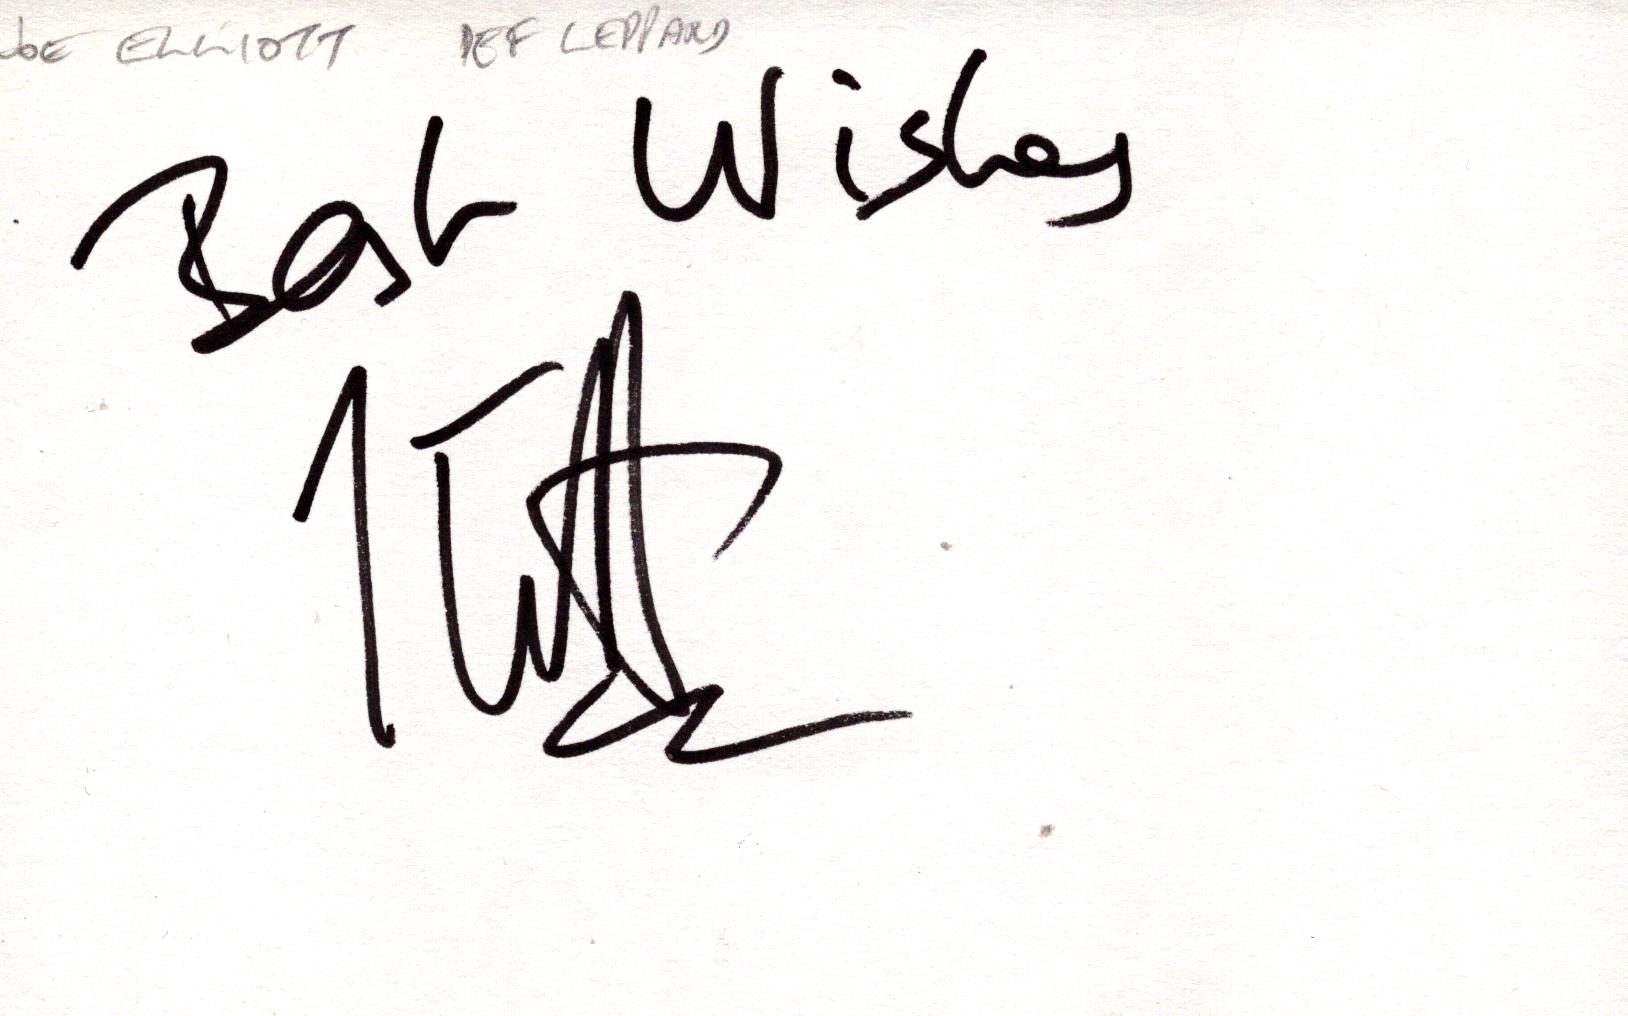 JOE ELLIOTT DEF LEPPARD
Best Wishes